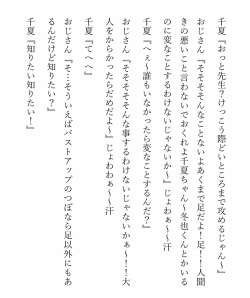 千夏『おっと先生?けっこう際どいところまで攻めるじゃん〜』
おじさん『そそそそんなことないよあくまで足だよ!足!!人聞
きの悪いこと言わないでおくれよ千夏ちゃん〜冬也くんとかいる
のに変なことするわけないじゃないか〜』じょわわぁ〜〜汗
千夏『へぇ〜誰もいなかったら変なことするんだ?』
おじさん『そそそそそんな事するわけないじゃないかぁ〜!!大
人をからかったらだめだよ〜』じょわわぁ〜〜汗
千夏『てへへ』
おじさん『そ…そういえばバストアップのつぼなら足以外にもあ
るんだけど知りたい?』
千夏『知りたい知りたい!』